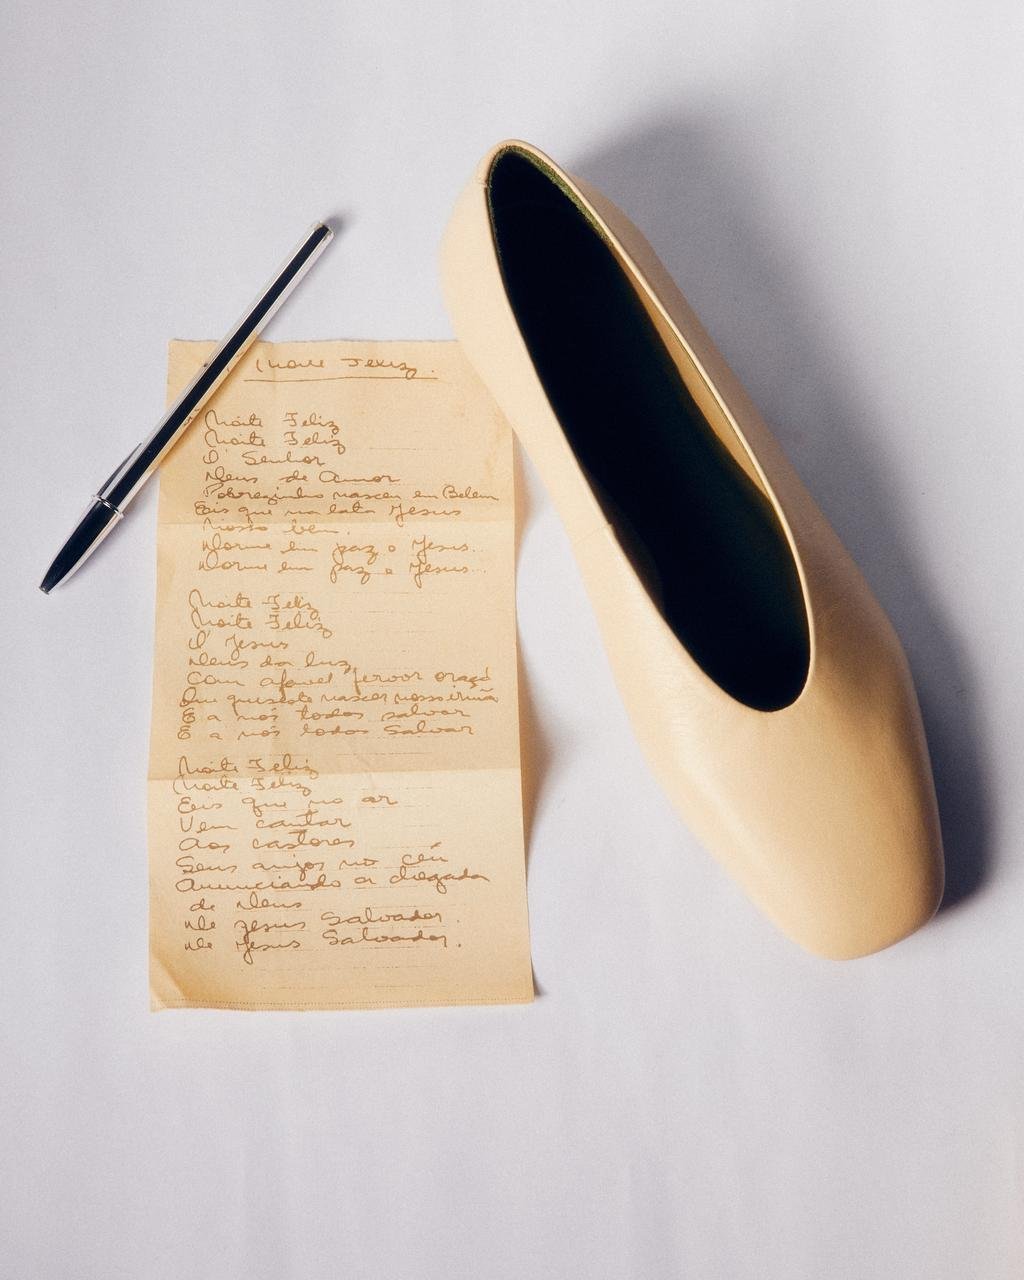 Noite Feliz.
Noite Feliz
Noite Feliz
O' Senhor
Deus de Amor
Pobrezinho nasceu em Belem
Eis que na lapa Jesus
Nosso bem.
Dorme em paz o Jesus...
Dorme em paz o Jesus...
Noite Feliz
Noite Feliz
O' Jesus
Deus da luz
Com afavel fervor
quiseste nascer nosso irmão
E a nós todos salvar
E a nós todos Salvar
Noite Feliz
Noite Feliz
Eis que no ar
Vem cantar
Aos
Seus anjos no céu
Anunciando a chegada
de Deus
De Jesus Salvador.
De Jesus Salvador.